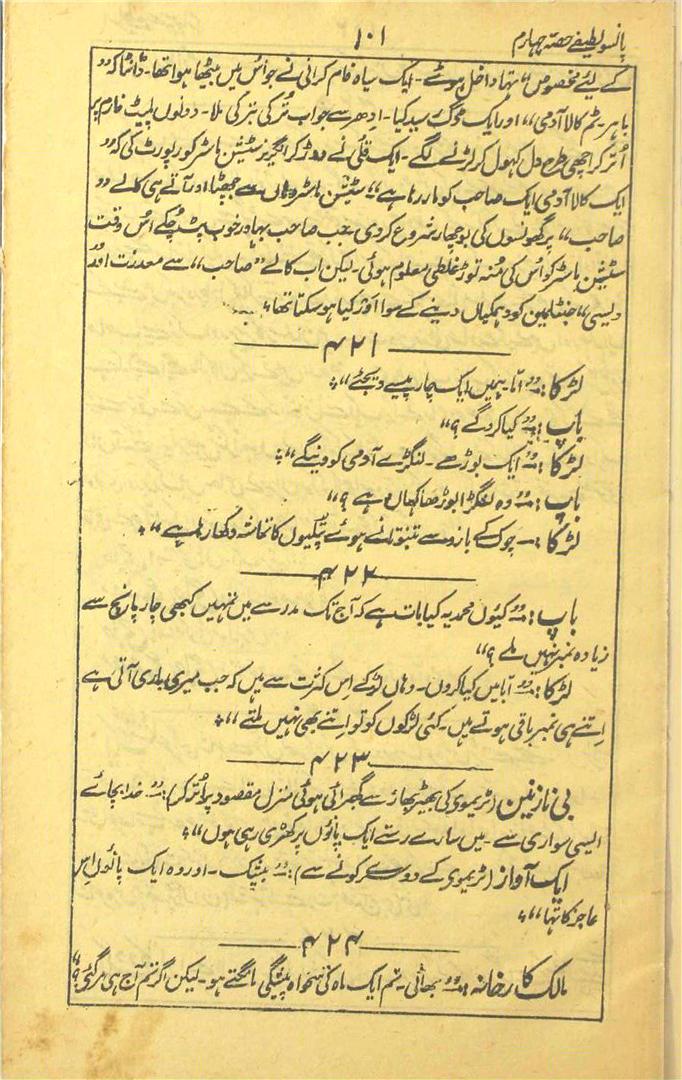 پانسو لطیفے حصہ چہارم
۱۰۱
کے لیئے مخصوص“ تنہا داخل ہوئے۔ ایک سیاہ فام کرانی نے جو اُس میں بیٹھا ہوا تھا۔ ڈانٹا کہ ”
باہر۔ ٹم کالا آدمی“ اور ایک مُوک رسید کیا۔ ادھر سے جواب تُرکی بہ تُرکی ملا۔ دونوں پلیٹ فارم پر
اُتر کر اچھی طرح دل کھول کر لڑنے لگے۔ ایک قلی نے دوڑ کر انگریز سٹیشن ماسٹر کو رپورٹ کی کہ ”
ایک کالا آدمی ایک صاحب کو مار رہا ہے“ سٹیشن ماسٹر وہاں سے جھپٹا اور آتے ہی کالے ”
صاحب“ پر گھونسوں کی بوچھار شروع کر دی۔ جب صاحب بہادر خوب پٹ چکے اُس وقت
سٹیشن ماسٹر کو اُس کی مُنہ توڑ غلطی معلوم ہوئی۔ لیکن اب کالے ”صاحب“ سے معذرت اور
دیسی ”جنٹلمین کو دہمکیاں دینے کے سوا اَور کیا ہو سکتا تھا؛
۴۲۱
لڑکا:۔ ”ابّا ہمیں ایک چار پیسے دیجئے“؛
باپ:۔ ”کیا کرو گے؟“
لڑکا:۔ ”ایک بوڑھے۔ لنگڑے آدمی کو دینگے“؛
باپ:۔ ”وہ لنگڑا بوڑھا کہاں ہے؟“
لڑکا:۔ چوک کے بازو سے تنبو تانے ہوئے پتلیوں کا تماشہ دکھا رہا ہے“؛
۴۲۲
باپ:۔ ”کیوں محمد یہ کیا بات ہے کہ آج تک مدرسے میں تمہیں کبھی چار پانچ سے
زیادہ نمبر نہیں ملے؟“
لڑکا:۔ ”ابا میں کیا کروں۔ وہاں لڑکے اِس کثرت سے ہیں کہ جب میری باری آتی ہے
اِتنے ہی نمبر باقی ہوتے ہیں۔ کئی لڑکوں کو تو اِتنے بھی نہیں ملتے“؛
۴۲۳
بی نازنین (ٹریموی کی بھیڑ بھاڑ سے گھبرائی ہوئی منزل مقصود پر اُتر کر):۔ ”خدا بچائے
ایسی سواری سے۔ میں سارے رستے ایک پاؤں پر کھڑی رہی ہوں“؛
ایک آواز (ٹریموی کے دوسرے کونے سے):۔ ”بیشک۔ اور وہ ایک پاؤں اِس
عاجز کا تھا“؛
۴۲۴
مالک کارخانہ:۔ ”بھائی۔ تم ایک ماہ کی تنخواہ پیشگی مانگتے ہو۔ لیکن اگر تم آج ہی مر گئے؟“